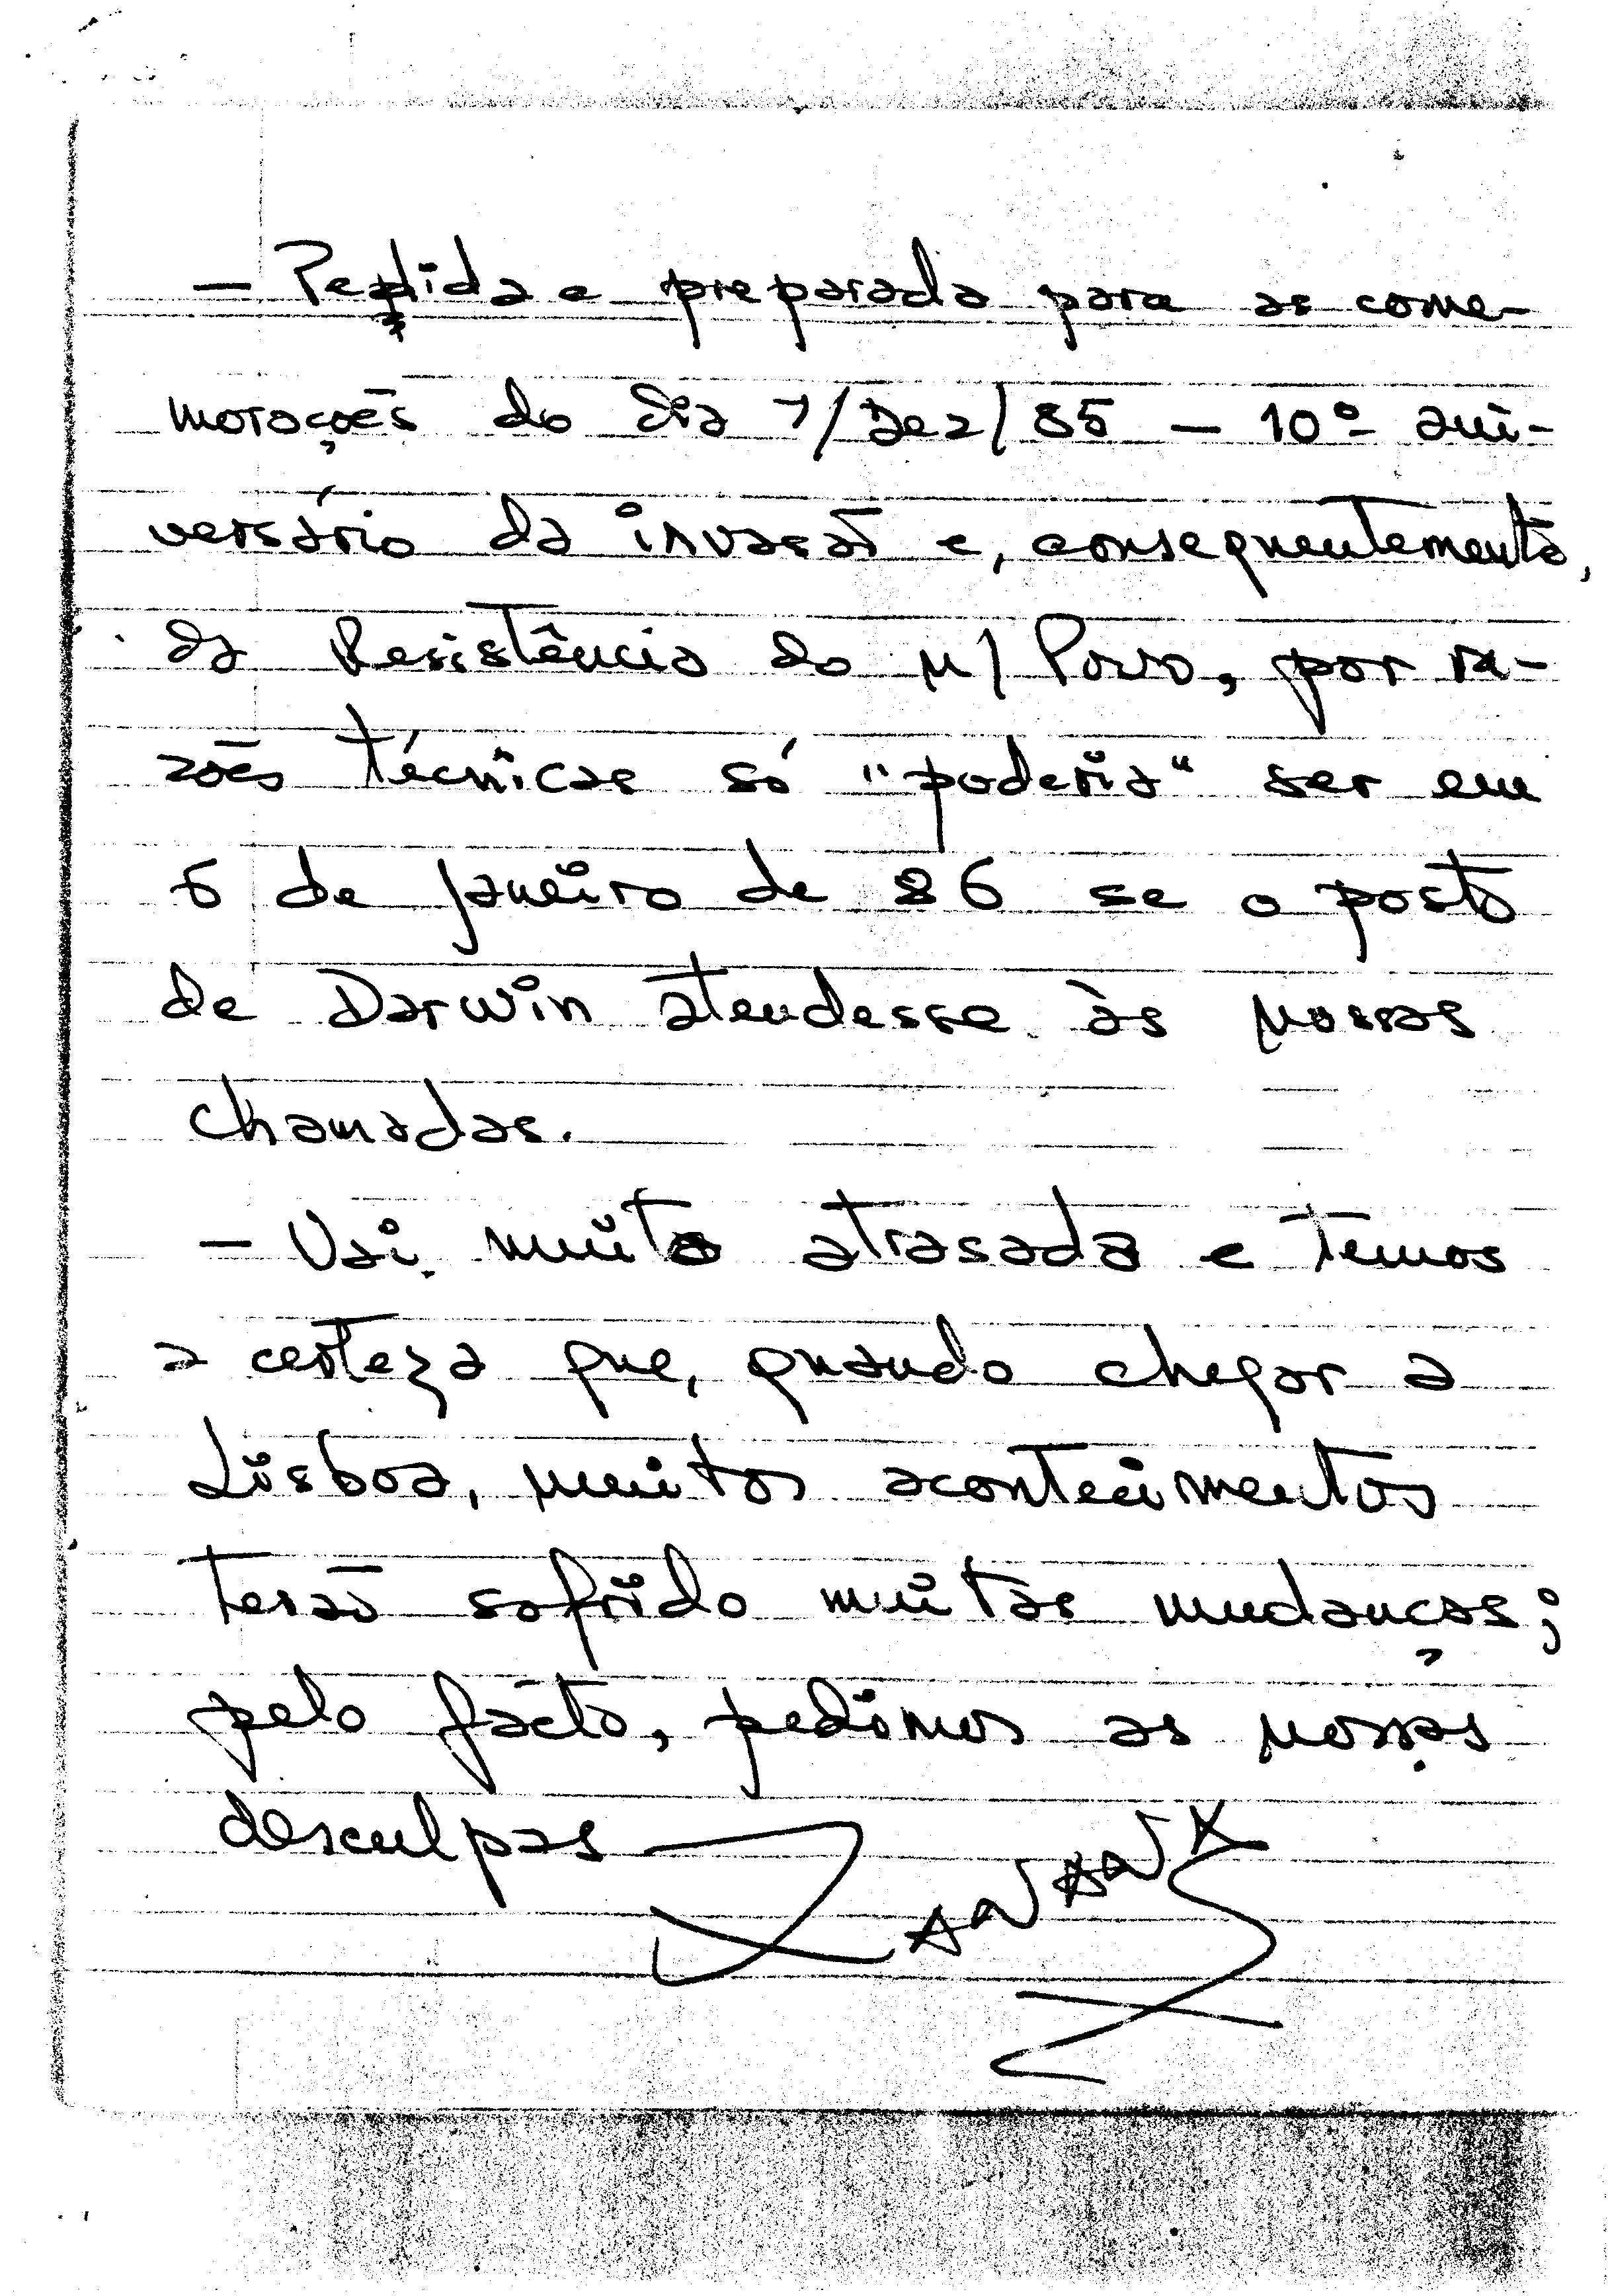 — Pedida e preparada para as come-
morações do dia 7/Dez/85 — 10º ani-
versário da invasão e, consequentemente,
da Resistência do n/ Povo, por ra-
zões técnicas só "poderia" ser em
6 de Janeiro de 86 se o posto
de Darwin atendesse às nossas
chamadas.
— Vai muito atrasada e temos
a certeza que, quando chegar a
Lisboa, muitos acontecimentos
terão sofrido muitas mudanças;
pelo facto, pedimos as nossas
desculpas